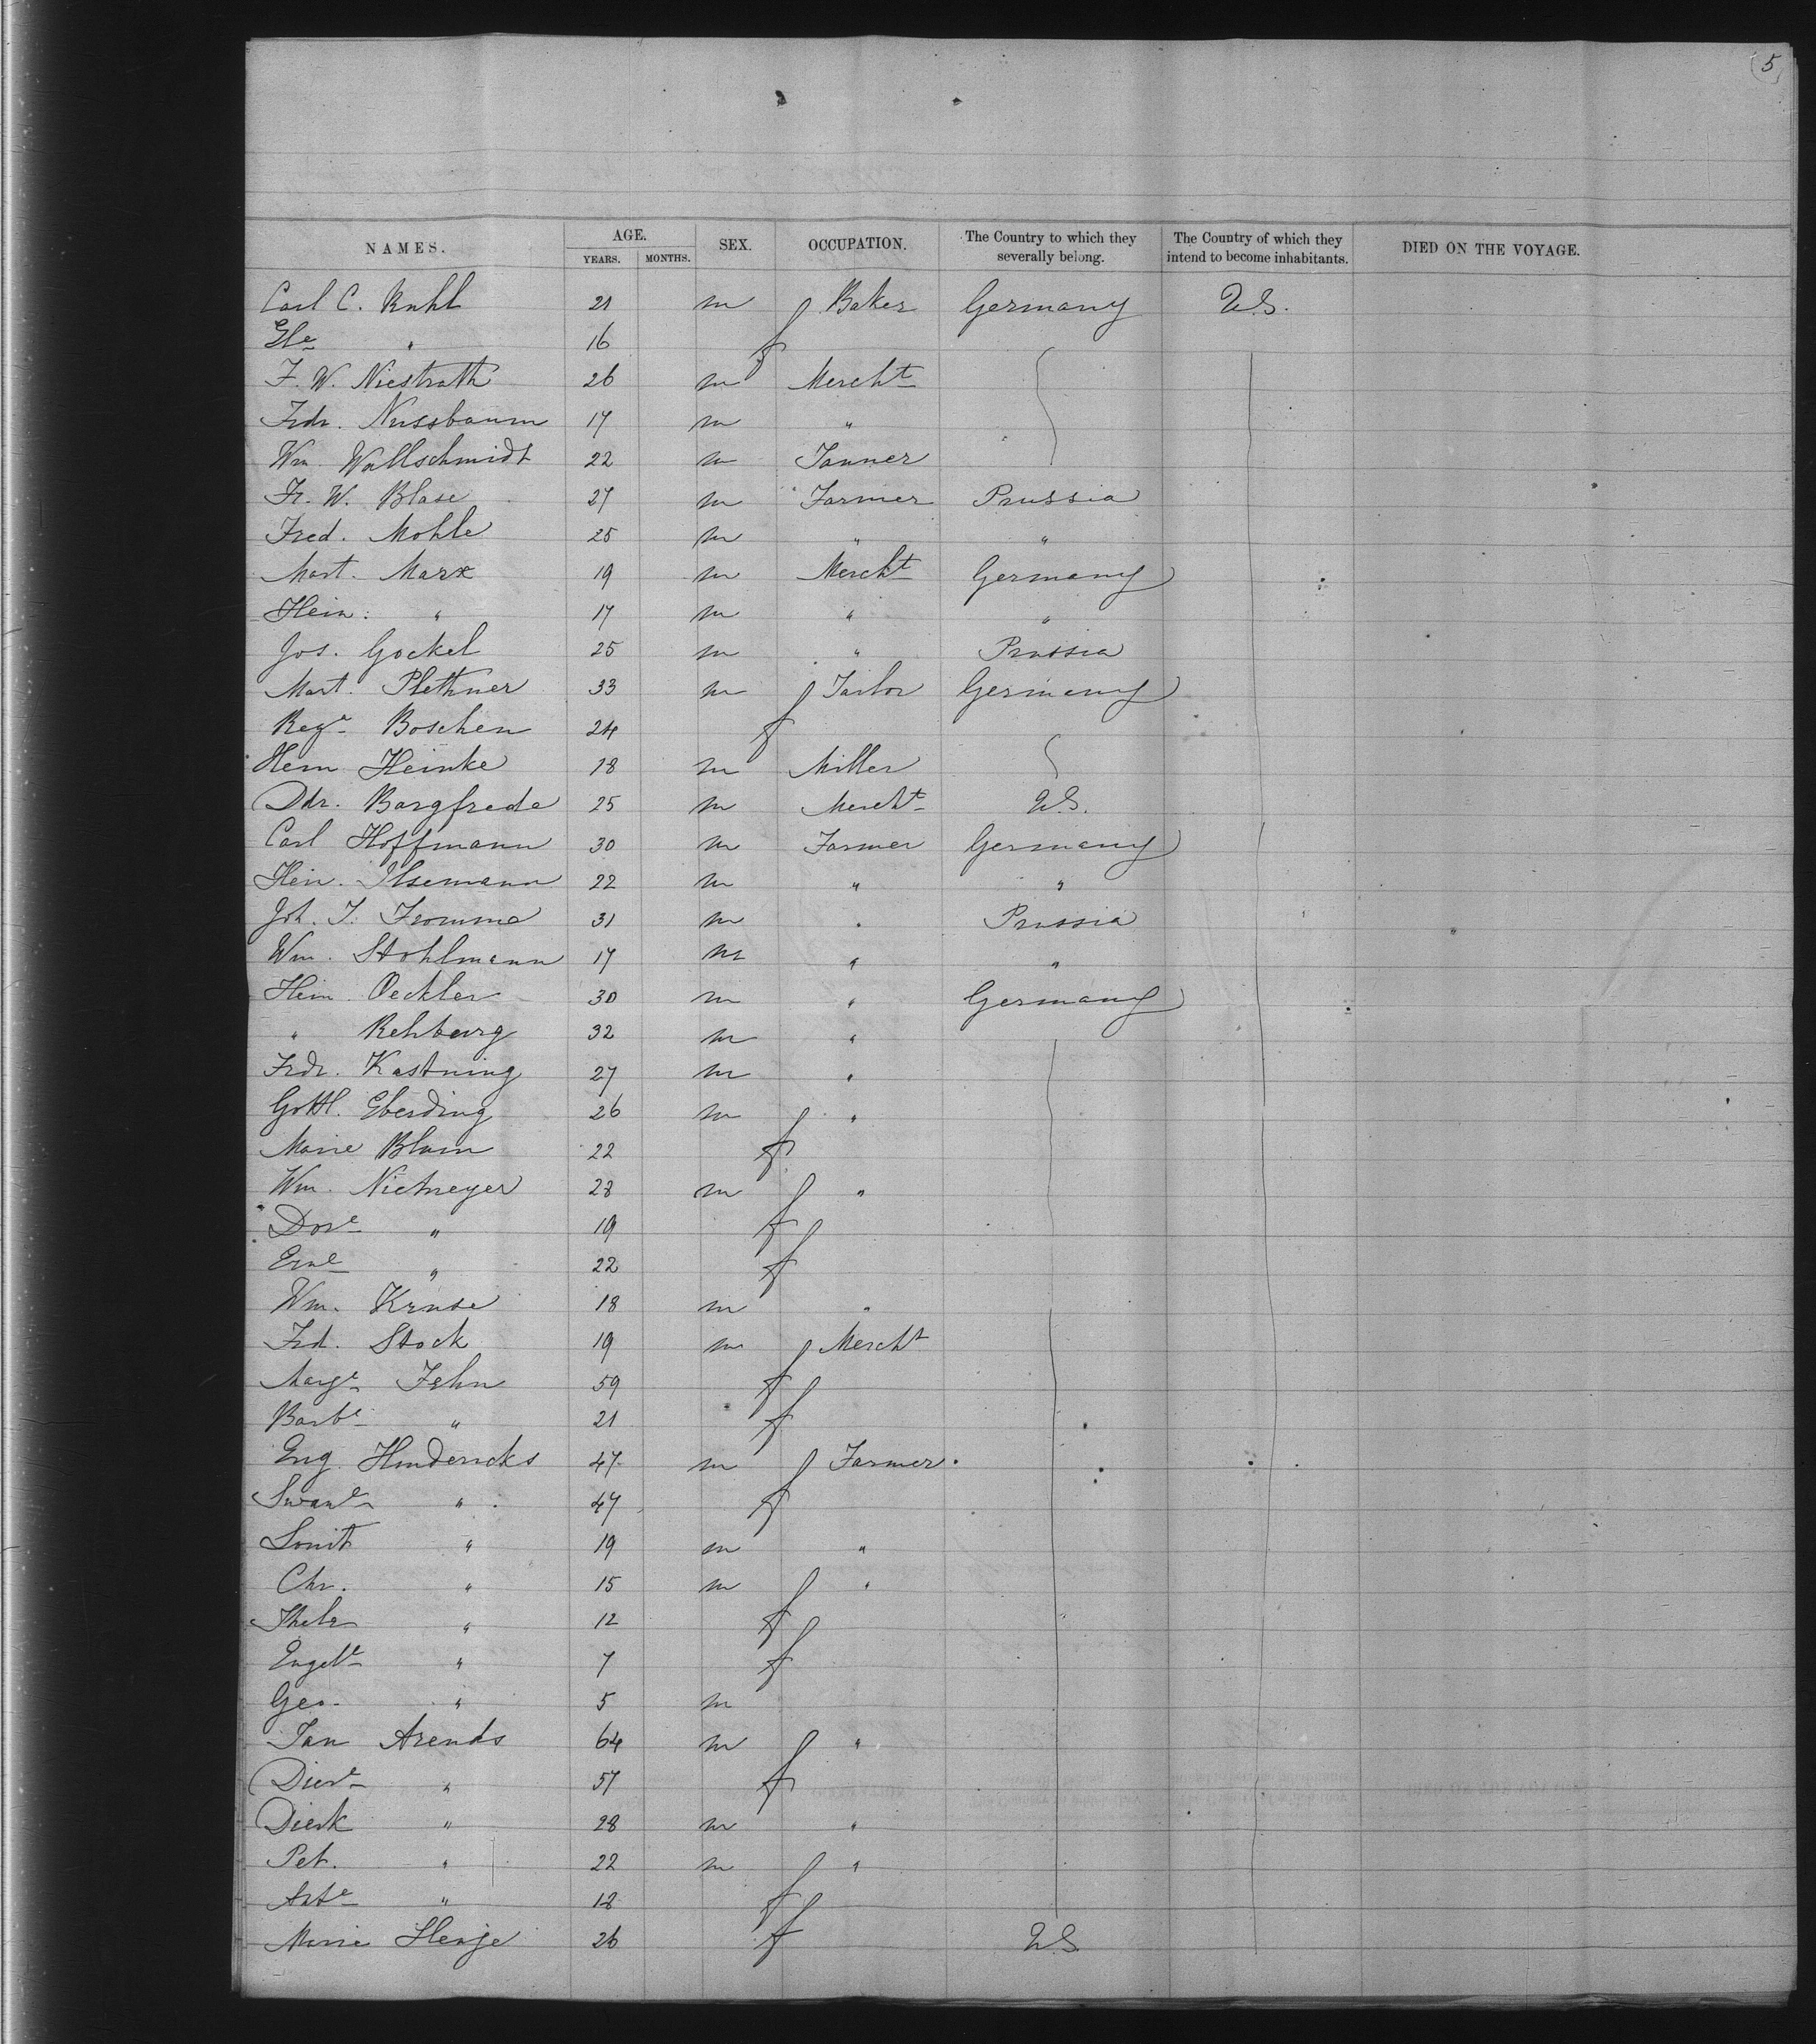 5
NAMES. AGE. SEX. OCCUPATION. The Country to which they severally belong. The Country of which they intend to become inhabitants. DIED ON THE VOYAGE.
YEARS. MONTHS.
Carl C. Ruhl 21 m Baker Germany U.S.
Else " 16 f
F. W. Niestrath 26 m Mercht
Frdr. Nussbaum 17 m "
Wm. Wallschmidt 22 m Tanner
Fr. W. Blase 27 m Farmer Prussia
Fred. Mohle 25 m " "
Mart. Marx 19 m Mercht Germany
Hein. " 17 m " "
Jos. Gockel 25 m " Prussia
Mart. Plethner 33 m Tailor Germany
Rega Boschen 24 f
Herm Heinke 18 m Miller
Ddr. Bargfrede 25 m Mercht U.S.
Carl Hoffmann 30 m Farmer Germany
Hein. Ilsemann 22 m " "
Joh. F. Fromme 31 m " Prussia
Wm. Stohlmann 17 m " "
Hein. Oeckler 30 m " Germany
" Rehburg 32 m "
Frdr. Kastning 27 m "
Gottl. Eberding 26 m "
Marie Blum 22 f
Wm. Nietmeyer 28 m "
Dore " 19 f
Erne " 22 f
Wm. Kruse 18 m "
Frd. Stock 19 m Mercht
Marge Fehn 59 f
Barbe " 21 f
Eng. Hindericks 47 m Farmer
Swane " 47 f
" 19 m "
Chr. " 15 m "
" 12 f
Engele " 7 f
Geo. " 5 m
Jan Arends 64 m "
" 57 f
Dierk " 28 m "
Pet. " 22 m "
Ante " 18 f
Marie Henje 26 f U.S.